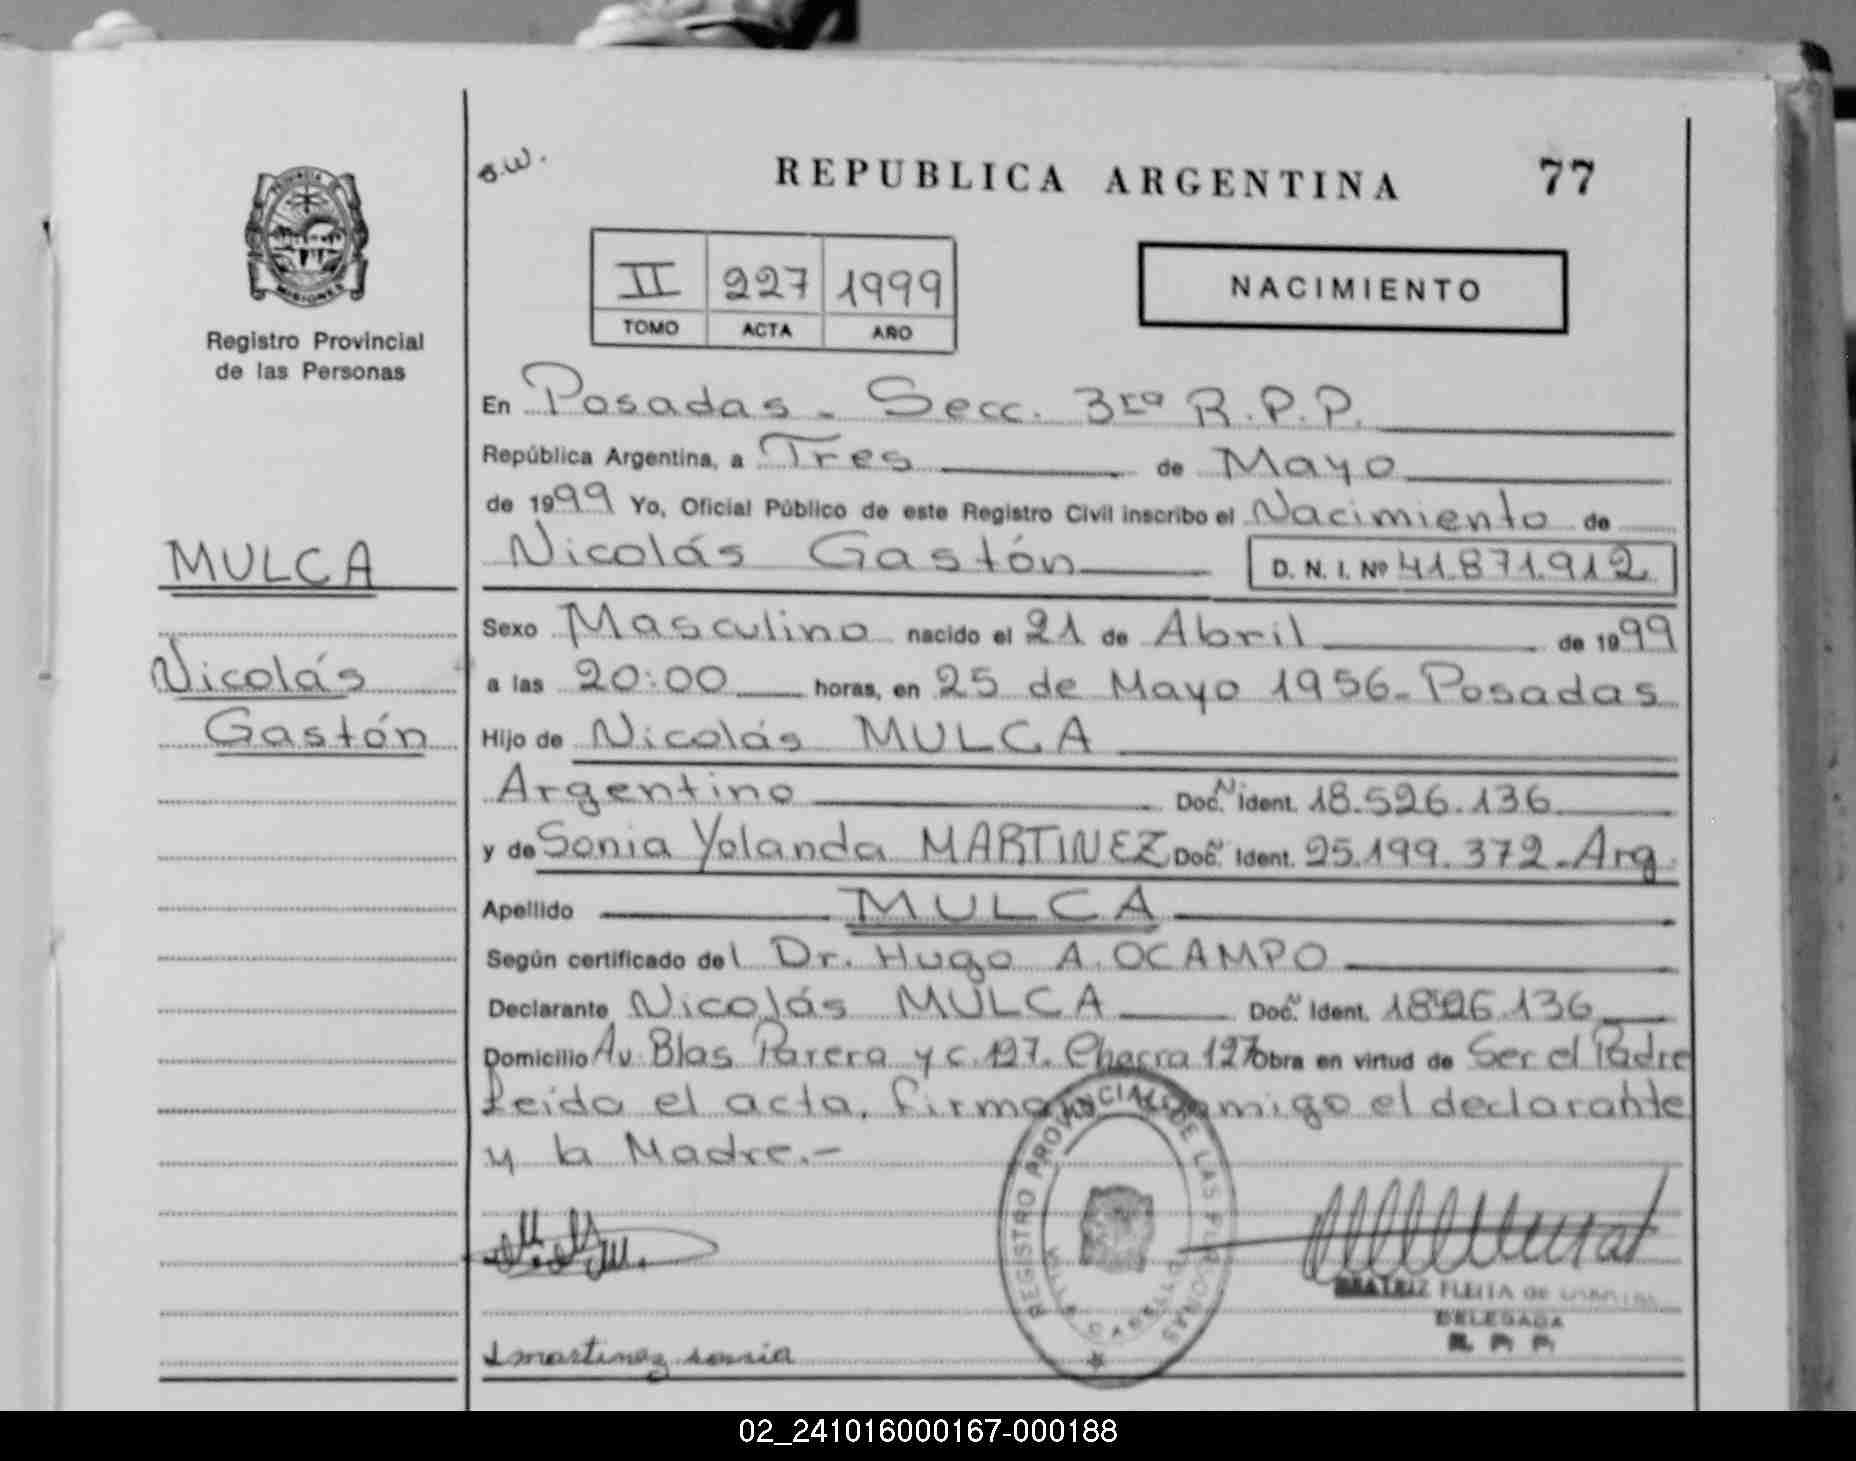 S.W.
REPUBLICA ARGENTINA 77
PROVINCIA DE
MISIONES
Registro Provincial
de las Personas
II 227 1999
TOMO ACTA AÑO
NACIMIENTO
En Posadas - Secc. 3ra R.P.P.
República Argentina, a Tres de Mayo
de 1999 Yo, Oficial Público de este Registro Civil inscribo el Nacimiento de
Nicolás Gastón D. N. I. Nº 41.871.912
MULCA
Nicolás
Gastón
Sexo Masculino nacido el 21 de Abril de 1999
a las 20:00 horas, en 25 de Mayo 1956 - Posadas
Hijo de Nicolás MULCA
Argentino Doc. N Ident. 18.526.136
y de Sonia Yolanda MARTINEZ Doc. N Ident. 25.199.372 - Arg.
Apellido MULCA
Según certificado del Dr. Hugo A. OCAMPO
Declarante Nicolás MULCA Doc. N Ident. 136
Domicilio Av. Blas Parera y c. 127. Chacra 127 obra en virtud de Ser el Padre
Leida el acta, firma conmigo el declarante
y la Madre.-
REGISTRO PROVINCIAL DE LAS PERSONAS
BEATRIZ FLEITA DE
DELEGADA
R. P. P.
martinez sonia
02_241016000167-000188